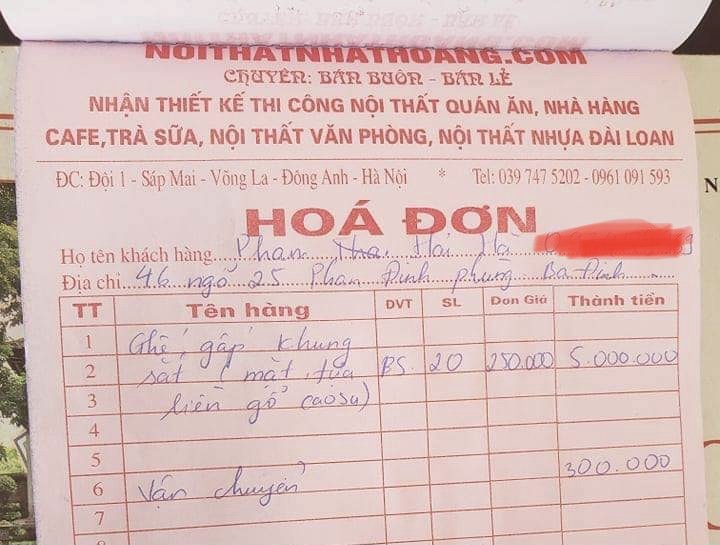 NOITHATNHATHOANG.COM
CHUYÊN: BÁN BUÔN - BÁN LẺ
NHẬN THIẾT KẾ THI CÔNG NỘI THẤT QUÁN ĂN, NHÀ HÀNG
CAFE,TRÀ SỮA, NỘI THẤT VĂN PHÒNG, NỘI THẤT NHỰA ĐÀI LOAN
ĐC: Đội 1 - Sáp Mai - Võng La - Đông Anh - Hà Nội * Tel: 039 747 5202 - 0961 091 593
HOÁ ĐƠN
Họ tên khách hàng Phạm Hải Hà
Địa chỉ 46 ngõ 25 Phan Đình Phùng Ba Đình
TT Tên hàng DVT SL Đơn Giá Thành tiền
1 Ghế gấp khung
2 sắt ( mặt tựa BS. 20 250.000 5.000.000
3 liền gỗ cao su)
4
5 300.000
6 Vận chuyển
7
8